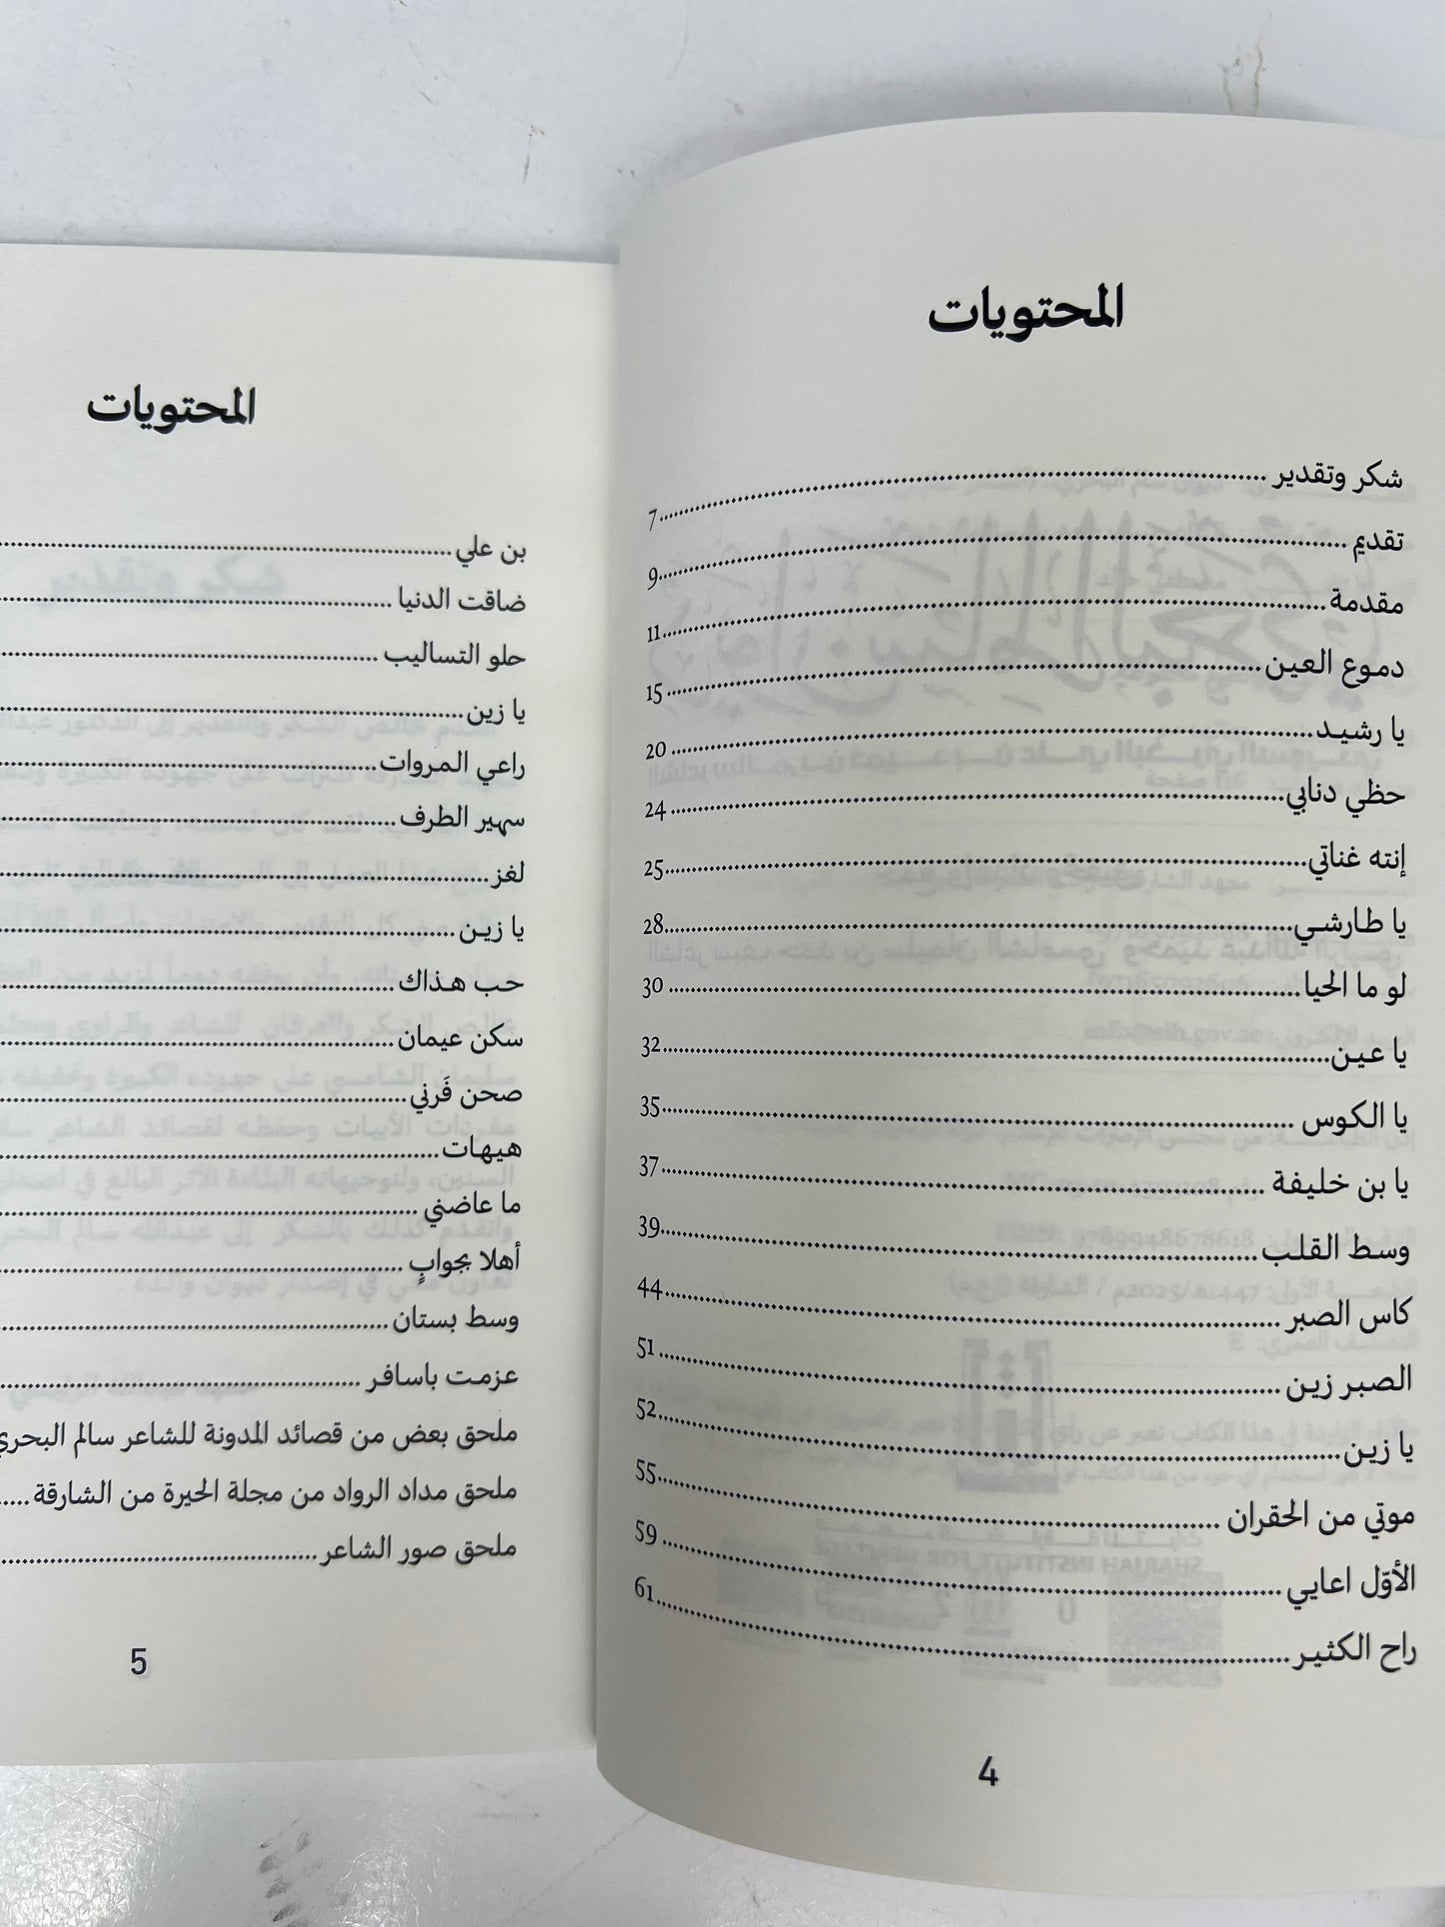 المحتويات
شكر وتقدير ........ 7
تقديم ........ 9
مقدمة ........ 11
دموع العين ........ 15
يا رشيد ........ 20
حظي دنابي ........ 24
إنته غناتي ........ 25
يا طارشي ........ 28
لو ما الحيا ........ 30
يا عين ........ 32
يا الكوس ........ 35
يا بن خليفة ........ 37
وسط القلب ........ 39
كاس الصبر ........ 44
الصبر زين ........ 51
يا زين ........ 52
موتي من الحقران ........ 55
الأوّل اعايي ........ 59
راح الكثير ........ 61
4
المحتويات
بن علي ........
ضاقت الدنيا ........
حلو التساليب ........
يا زين ........
راعي المروات ........
سهير الطرف ........
لغز ........
يا زين ........
حب هذاك ........
سكن عيمان ........
صحن فَرني ........
هيهات ........
ما عاضني ........
أهلا بجوابٍ ........
وسط بستان ........
عزمت باسافر ........
ملحق بعض من قصائد المدونة للشاعر سالم البحري
ملحق مداد الرواد من مجلة الحيرة من الشارقة ........
ملحق صور الشاعر ........
5